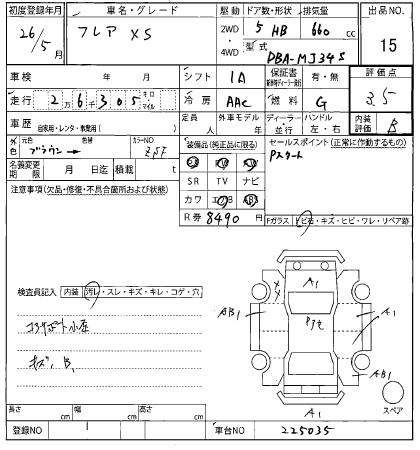 初度登録年月 車名・グレード 駆動 ドア数・形状 排気量 出品NO.
26/5月 フレア XS 2WD 4WD 5 HB 660 cc 15
型式 DBA-MJ34S
車検 年 月 シフト IA 保証書 有・無 評価点
走行 2万6千305 キロ マイル 冷房 AAC 燃料 G 3.5
車歴 自家用・レンタ・事業用( ) 定員 人 外車モデル 年 ディーラー・並行 ハンドル 左・右 内装評価 B
外色 元色 ブラウン 色替 カラーNO ZJF 装備品(純正品に限る) セールスポイント(正常に作動するもの)
名義変更期限 月 日迄 積載 t Pスタート
注意事項(欠品・修復・不具合箇所および状態) SR TV ナビ
カワ エアB ABS
R券 8490 円 Fガラス ヒビ石・キズ・ヒビ・ワレ・リペア跡
検査員記入 内装 汚レ・スレ・キズ・キレ・コゲ・穴
コアサポート小座
キズ、B、
A1
AB1
A1
AB1
A1
スペア
長さ cm 幅 cm 高さ cm
登録NO 車台NO 225035